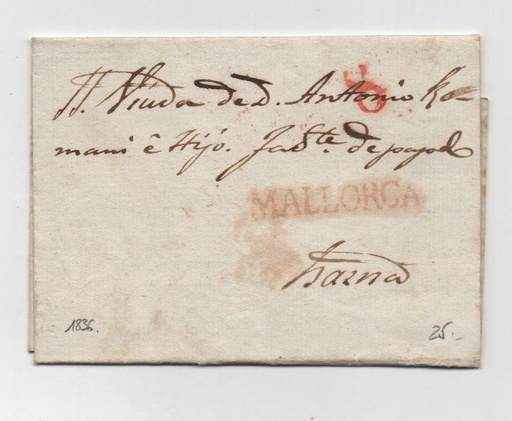 Sr. Viuda de d. Antonio Ro-
mani é Hijó. Fabte. de papel
MALLORCA
Barna
1836.
25.-